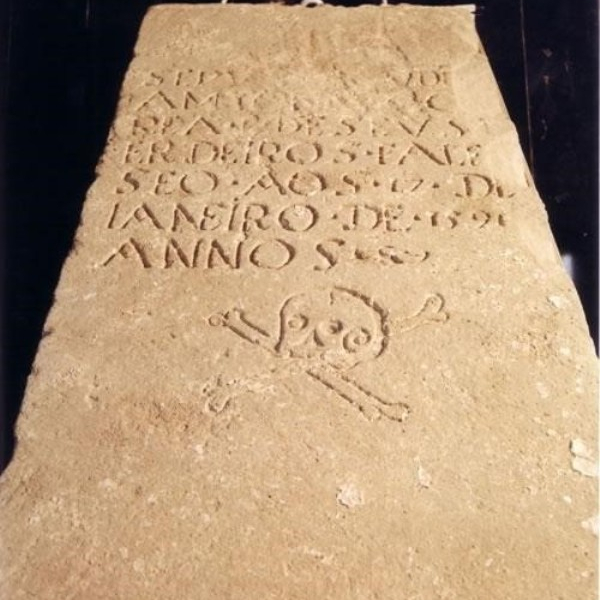 AM
REA · E DE SEVS
ERDEIROS · FALE
SEO · AOS · 17 · DE
IANEIRO · DE · 1591
ANNOS